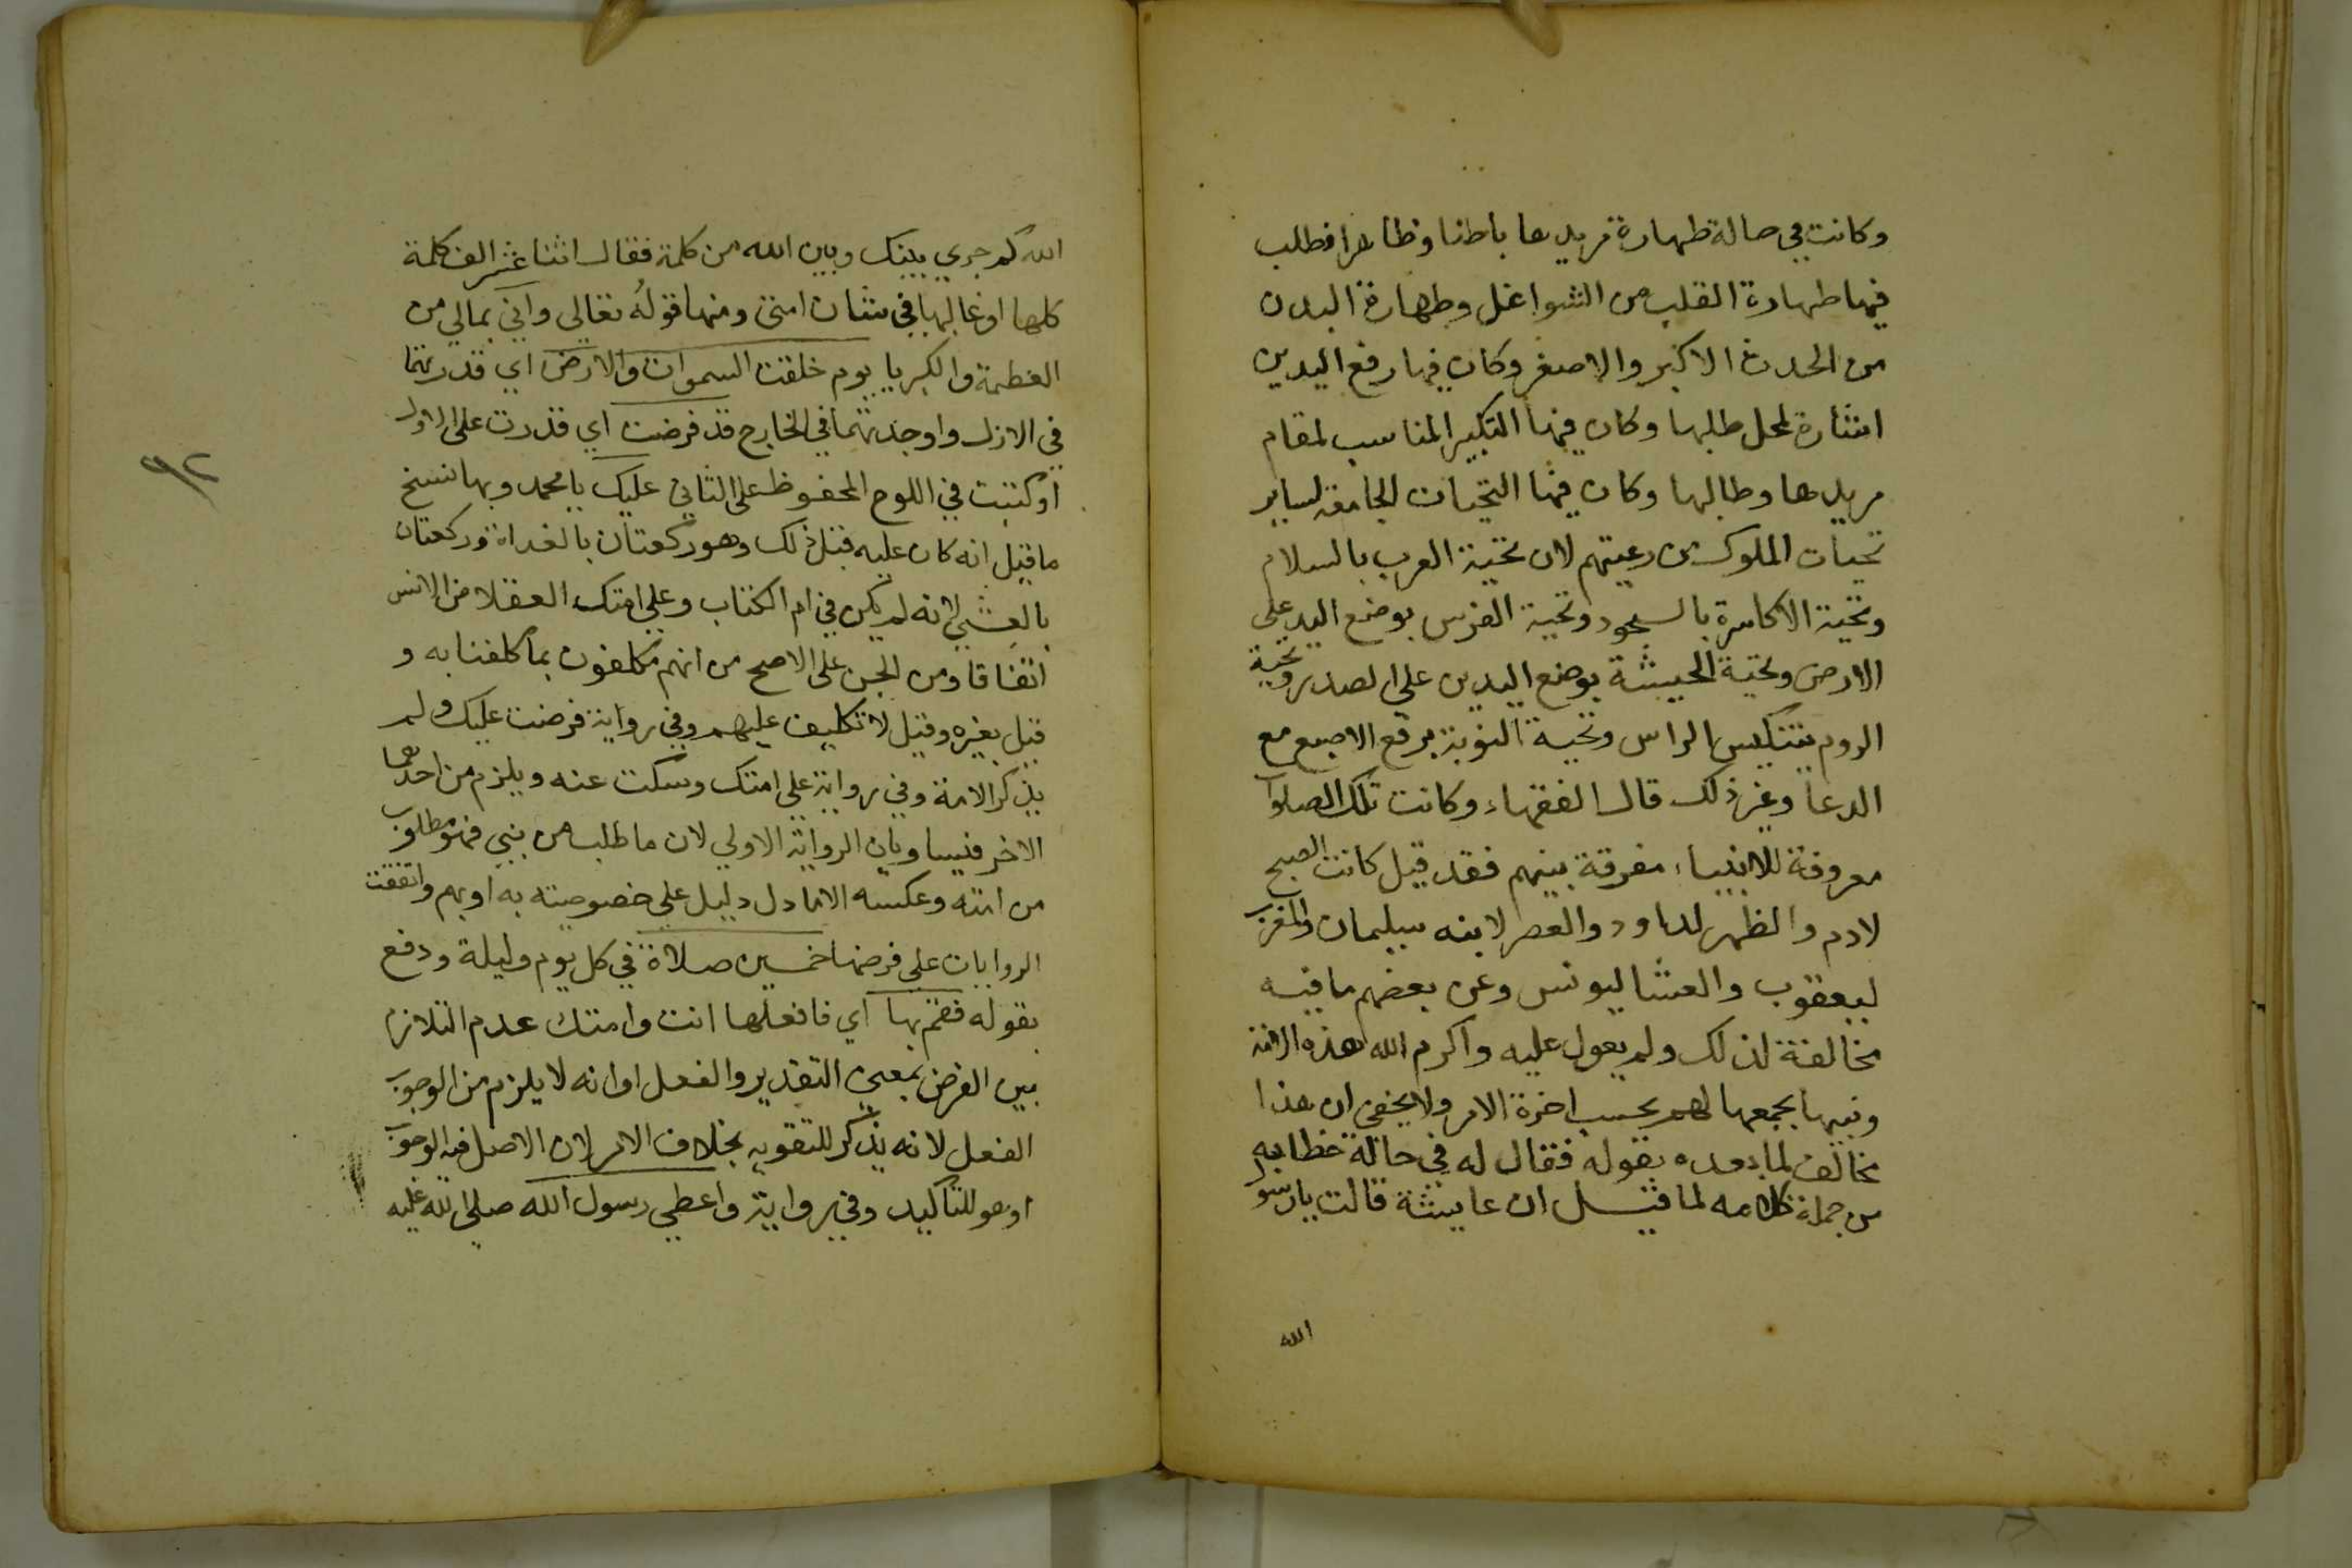 وكانت في حالة طهارة مريدها باطنا وظاهرا فطلب
فيها طهارة القلب من الشواغل وطهارة البدن
من الحدث الاكبر والاصغر وكان فيها رفع اليدين
اشارة لمحل طلبها وكان فيها التكبير المناسب لمقام
مريدها وطالبها وكان فيها التحيات الجامعة لساير
تحيات الملوك من رعيتهم لان تحية العرب بالسلام
وتحية الاكاسرة بالسجود وتحية الفرس بوضع اليد على
الارض وتحية الحبشة بوضع اليدين على الصدر وتحية
الروم بتنكيس الراس وتحية النوبة برفع الاصبع مع
الدعا وغير ذلك قال الفقهاء وكانت تلك الصلوات
معروفة للانبياء مفرقة بينهم فقد قيل كانت الصبح
لادم والظهر لداود والعصر لابنه سليمان والمغرب
ليعقوب والعشا ليونس وعن بعضهم ما فيه
مخالفة لذلك ولم يعول عليه واكرم الله هذه الامة
ونبيها بجمعها لهم بحسب اخرة الامر ولا يخفى ان هذا
مخالف لما بعده بقوله فقال له في حالة خطابه
من جملة كلامه لما قيل ان عايشة قالت يا رسول
الله
الله كم جري بينك وبين الله من كلمة فقال اثنا عشر الف كلمة
كلها او غالبها في شان امتي ومنها قوله تعالي واني بمالي من
العظمة والكبريا يوم خلقت السموات والارض اي قدرتهما
في الازل واوجدتهما في الخارج قد فرضت اي قدرت على الاول
او كتبت في اللوح المحفوظ على الثاني عليك يا محمد وبها نسخ
ما قيل انه كان عليه قبل ذلك وهو ركعتان بالغداة وركعتان
بالعشي لانه لم يكن في ام الكتاب وعلى امتك العقلا من الانس
اتفاقا ومن الجن على الاصح من انهم مكلفون بما كلفنا به و
قيل بغيره وقيل لا تكليف عليهم وفي رواية فرضت عليك ولم
يذكر الامة وفي رواية على امتك وسكت عنه ويلزم من احدهما
الاخر فيساويان الرواية الاولي لان ما طلب من نبي فهو مطلوب
من امته وعكسه الا ما دل دليل على خصوصيته به او بهم واتفقت
الروايات على فرضها خمسين صلاة في كل يوم وليلة ودفع
بقوله فقم بها اي فافعلها انت وامتك عدم التلازم
بين الفرض بمعنى التقدير والفعل او انه لا يلزم من الوجوب
الفعل لانه يذكر للتقوية بخلاف الامر لان الاصل فيه الوجوب
او هو للتاكيد وفي رواية واعطي رسول الله صلى الله عليه
٩٢